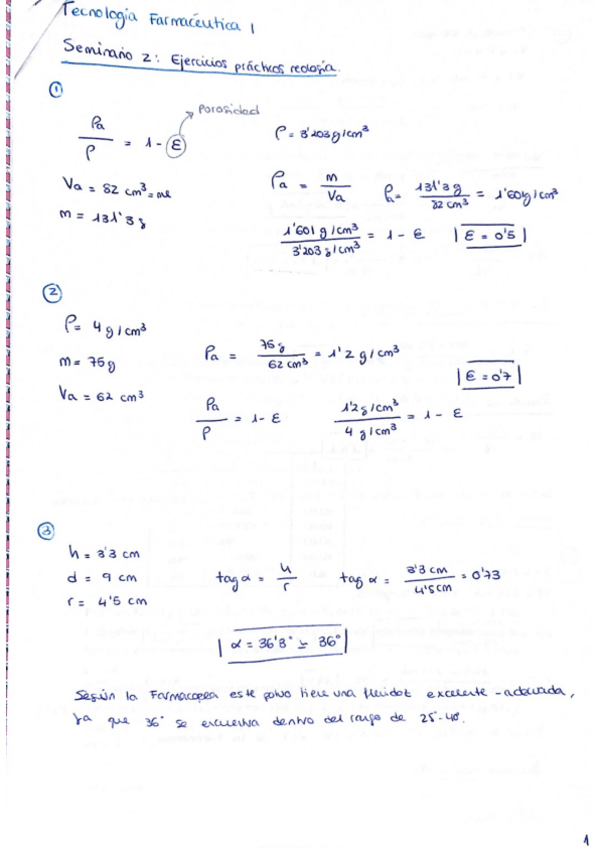 Tecnología Farmacéutica I
Seminario 2: Ejercicios prácticos reología.
①
Pa / P = 1 - ε → Porosidad
ρ = 3'203 g/cm³
Va = 82 cm³ = ml
m = 131'3 g
Pa = m / Va
Pa = 131'3 g / 82 cm³ = 1'601 g/cm³
1'601 g/cm³ / 3'203 g/cm³ = 1 - ε
| ε = 0'5 |
②
ρ = 4 g/cm³
m = 75 g
Va = 62 cm³
Pa = 75 g / 62 cm³ = 1'2 g/cm³
| ε = 0'7 |
Pa / P = 1 - ε
1'2 g/cm³ / 4 g/cm³ = 1 - ε
③
h = 3'3 cm
d = 9 cm
r = 4'5 cm
tag α = h / r
tag α = 3'3 cm / 4'5 cm = 0'73
| α = 36'3° ≃ 36° |
Según la Farmacopea este polvo tiene una fluidez excelente - adecuada,
ya que 36° se encuentra dentro del rango de 25°-40°.
1